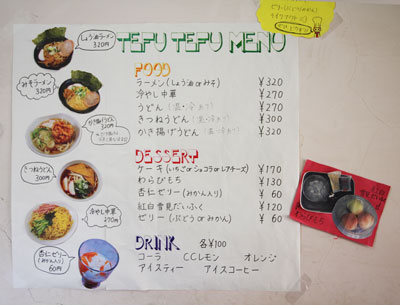 TEFU TEFU MENU
しょう油ラーメン
320円
みそラーメン
320円
かき揚げうどん
320円
きつねうどん
300円
冷やし中華
270円
杏仁ゼリー
(みかん入り)
60円
FOOD
ラーメン(しょう油orみそ) ¥320
冷やし中華 ¥270
うどん(温・冷あり) ¥270
きつねうどん(温・冷あり) ¥300
かき揚げうどん(温・冷あり) ¥320
DESSERT
ケーキ(いちごorショコラorレアチーズ) ¥170
わらびもち ¥130
杏仁ゼリー(みかん入り) ¥60
紅白雪見だいふく ¥120
ゼリー(ぶどうorみかん) ¥60
DRINK 各¥100
コーラ CCレモン オレンジ
アイスティー アイスコーヒー
わらびもち